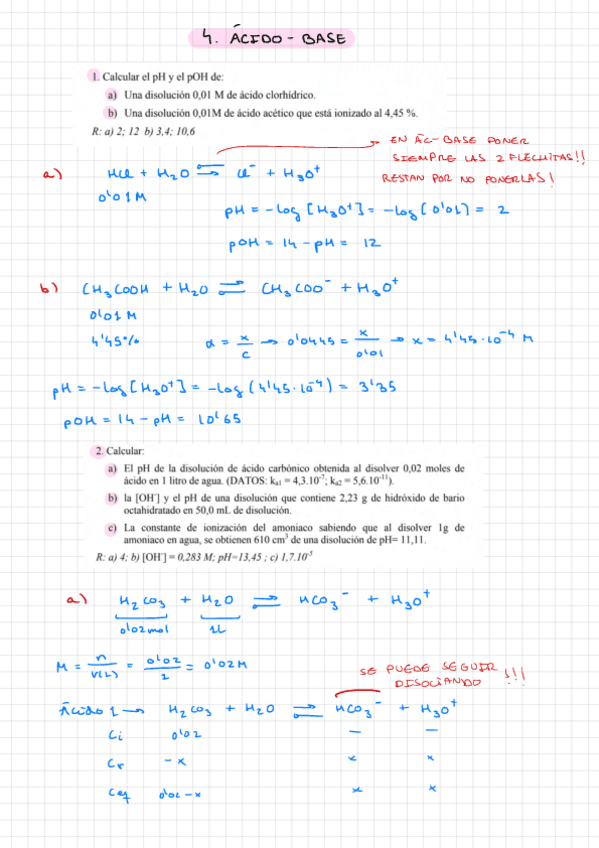 4. ÁCIDO - BASE
1. Calcular el pH y el pOH de:
a) Una disolución 0,01 M de ácido clorhídrico.
b) Una disolución 0,01M de ácido acético que está ionizado al 4,45 %.
R: a) 2; 12 b) 3,4; 10,6
EN ÁC-BASE PONER
SIEMPRE LAS 2 FLECHITAS!!
RESTAN POR NO PONERLAS!
a) HCl + H₂O ⇌ Cl⁻ + H₃O⁺
0'01 M
pH = -log [H₃O⁺] = -log (0'01) = 2
pOH = 14 - pH = 12
b) CH₃COOH + H₂O ⇌ CH₃COO⁻ + H₃O⁺
0'01 M
4'45% α = x/c → 0'0445 = x/0'01 → x = 4'45·10⁻⁴ M
pH = -log [H₃O⁺] = -log (4'45·10⁻⁴) = 3'35
pOH = 14 - pH = 10'65
2. Calcular:
a) El pH de la disolución de ácido carbónico obtenida al disolver 0,02 moles de
ácido en 1 litro de agua. (DATOS: kₐ₁ = 4,3.10⁻⁷; kₐ₂ = 5,6.10⁻¹¹).
b) la [OH⁻] y el pH de una disolución que contiene 2,23 g de hidróxido de bario
octahidratado en 50,0 mL de disolución.
c) La constante de ionización del amoniaco sabiendo que al disolver 1g de
amoniaco en agua, se obtienen 610 cm³ de una disolución de pH= 11,11.
R: a) 4; b) [OH⁻] = 0,283 M; pH=13,45 ; c) 1,7.10⁻⁵
a) H₂CO₃ + H₂O ⇌ HCO₃⁻ + H₃O⁺
0'02mol 1L
M = n/V(L) = 0'02/1 = 0'02M
SE PUEDE SEGUIR
DISOCIANDO !!!
Ácido 1 → H₂CO₃ + H₂O ⇌ HCO₃⁻ + H₃O⁺
Ci 0'02 — —
Cr -x x x
Ceq 0'02-x x x